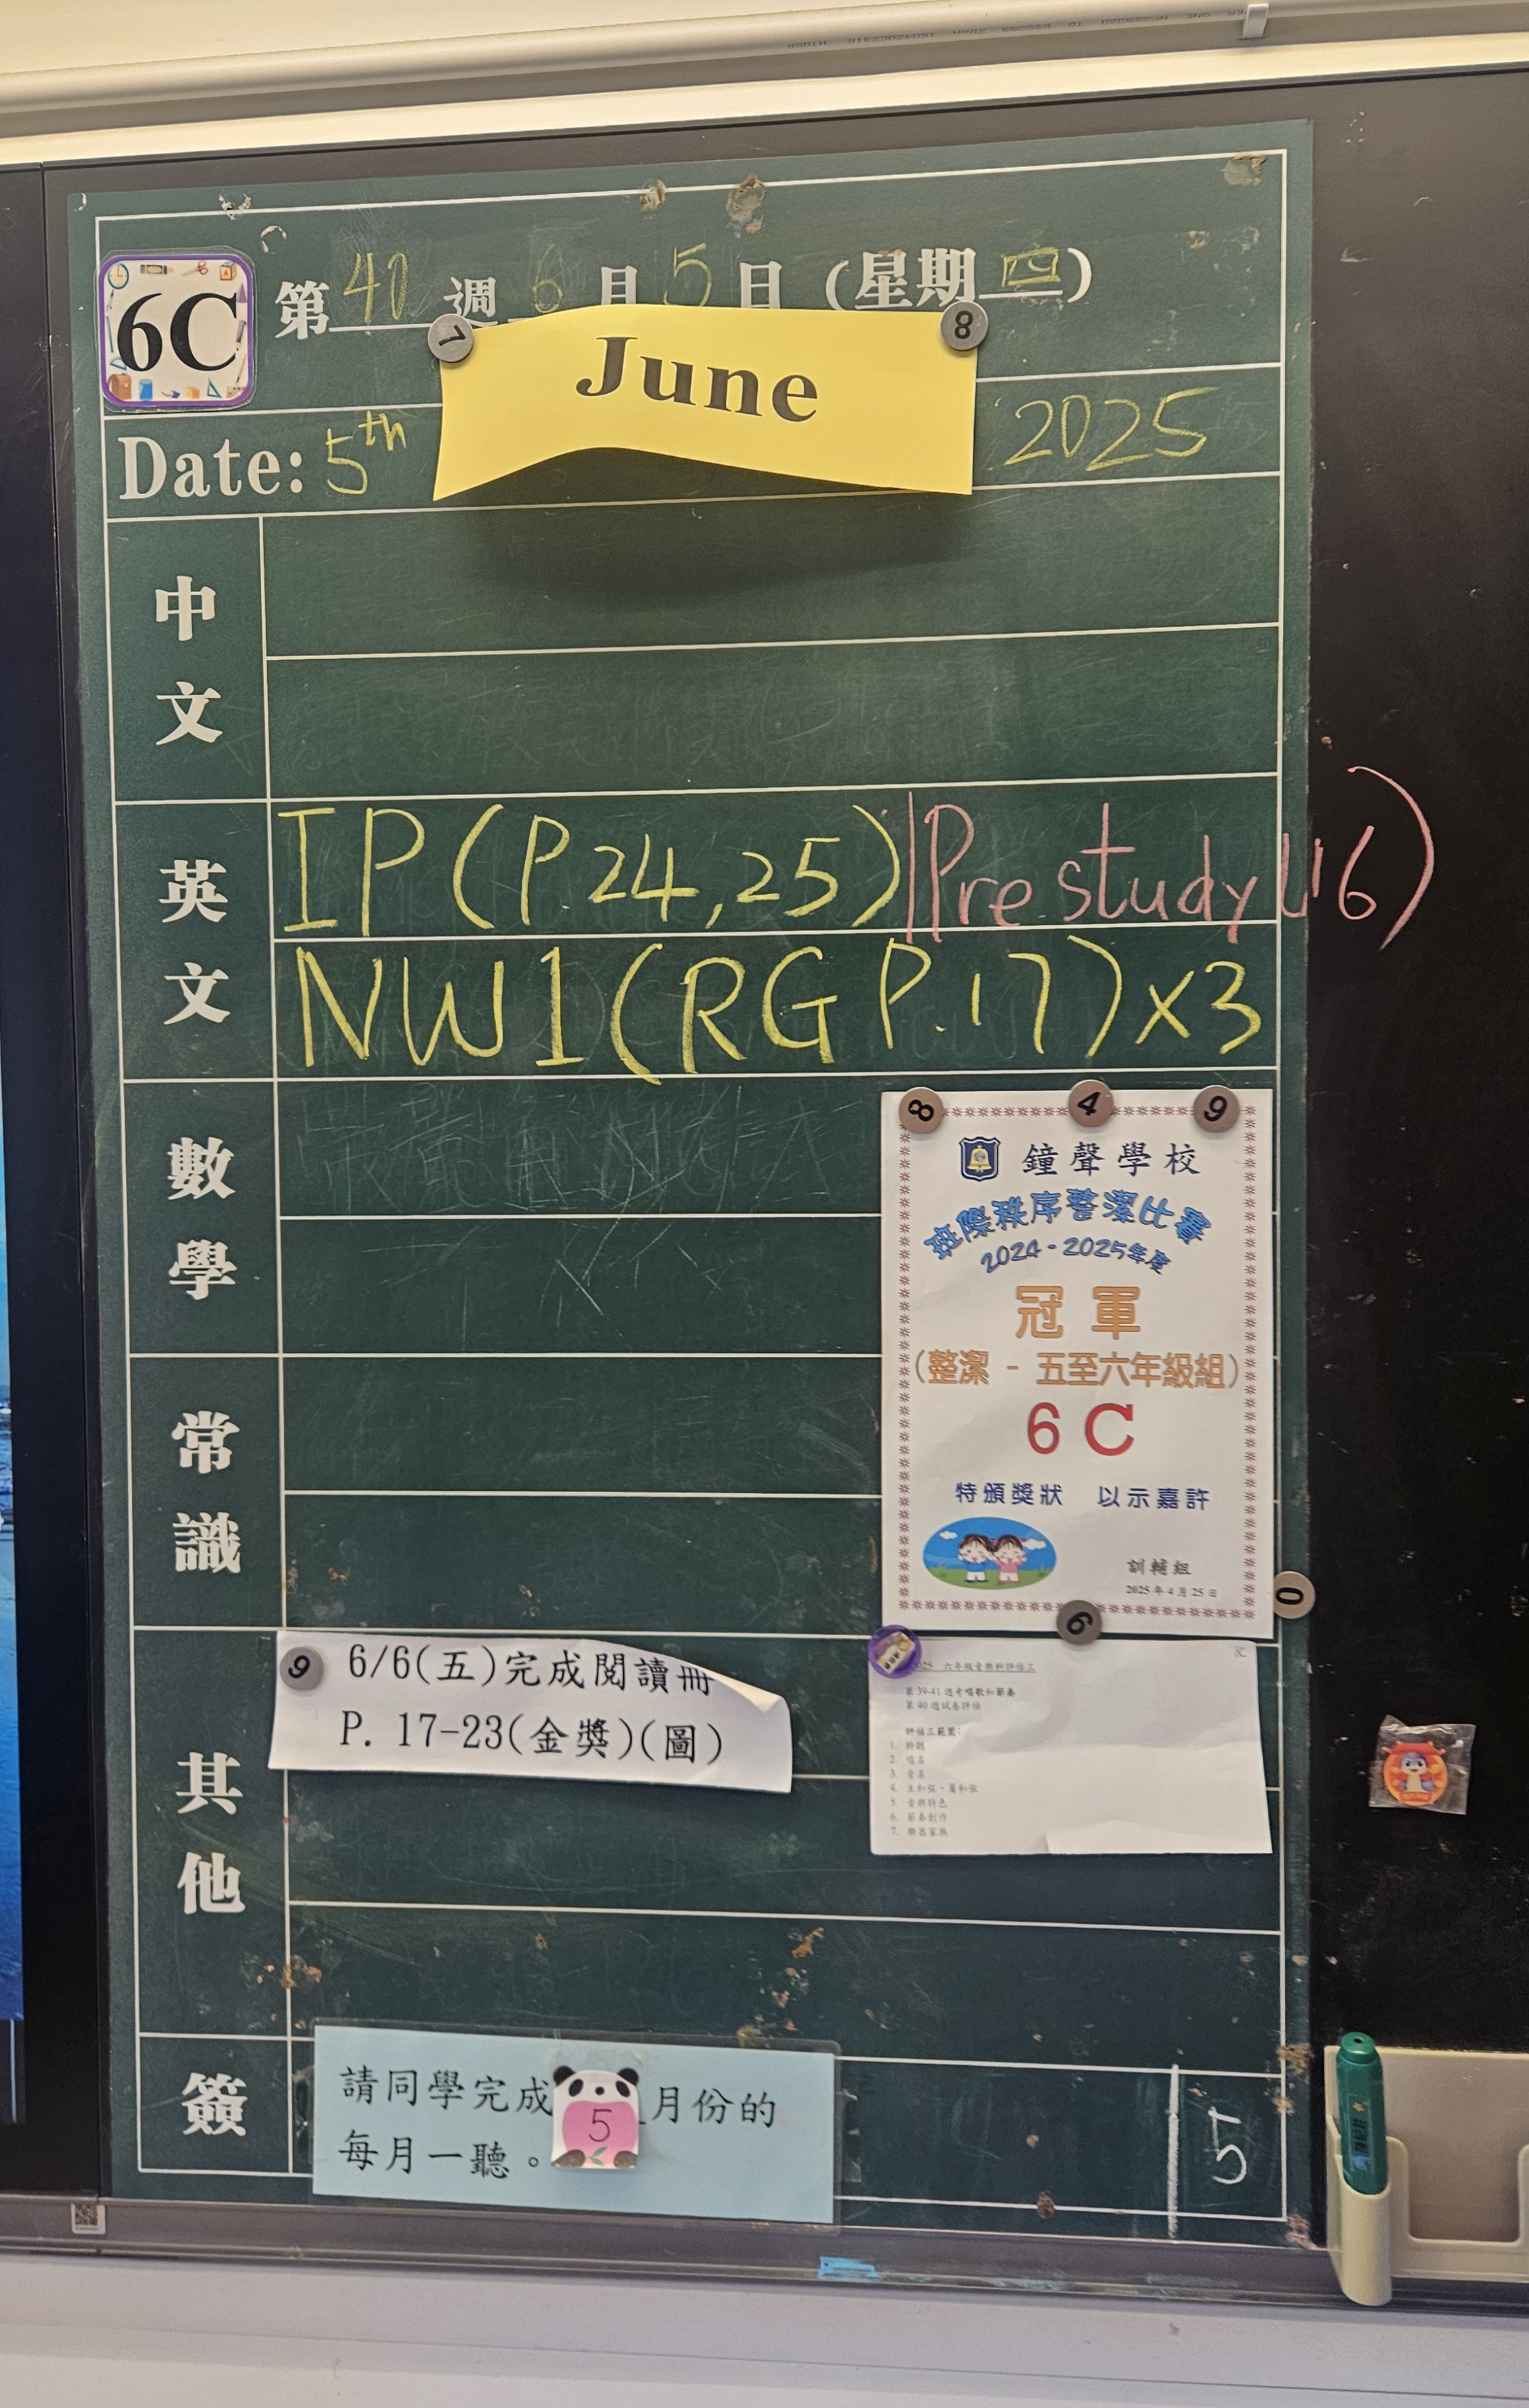 6C
第40週6月5日(星期四)
June
Date: 5th 2025
中文
英文
IP (P.24,25)|Pre.study
NW1(RG P.17)x3
數學
常識
鐘聲學校
班際秩序整潔比賽
2024-2025年度
冠軍
(整潔 - 五至六年級組)
6C
特頒獎狀 以示嘉許
訓輔組
2025年4月25日
其他
6/6(五)完成閱讀冊
P. 17-23(金獎)(圖)
六年級音樂科評估三
第39-41週考唱歌和節奏
第40週試卷評估
評估三範圍:
1. 聆聽
2. 唱名
3. 音名
4. 主和弦、屬和弦
5. 音樂特色
6. 節奏創作
7. 樂器家族
簽
請同學完成5月份的
每月一聽。
5